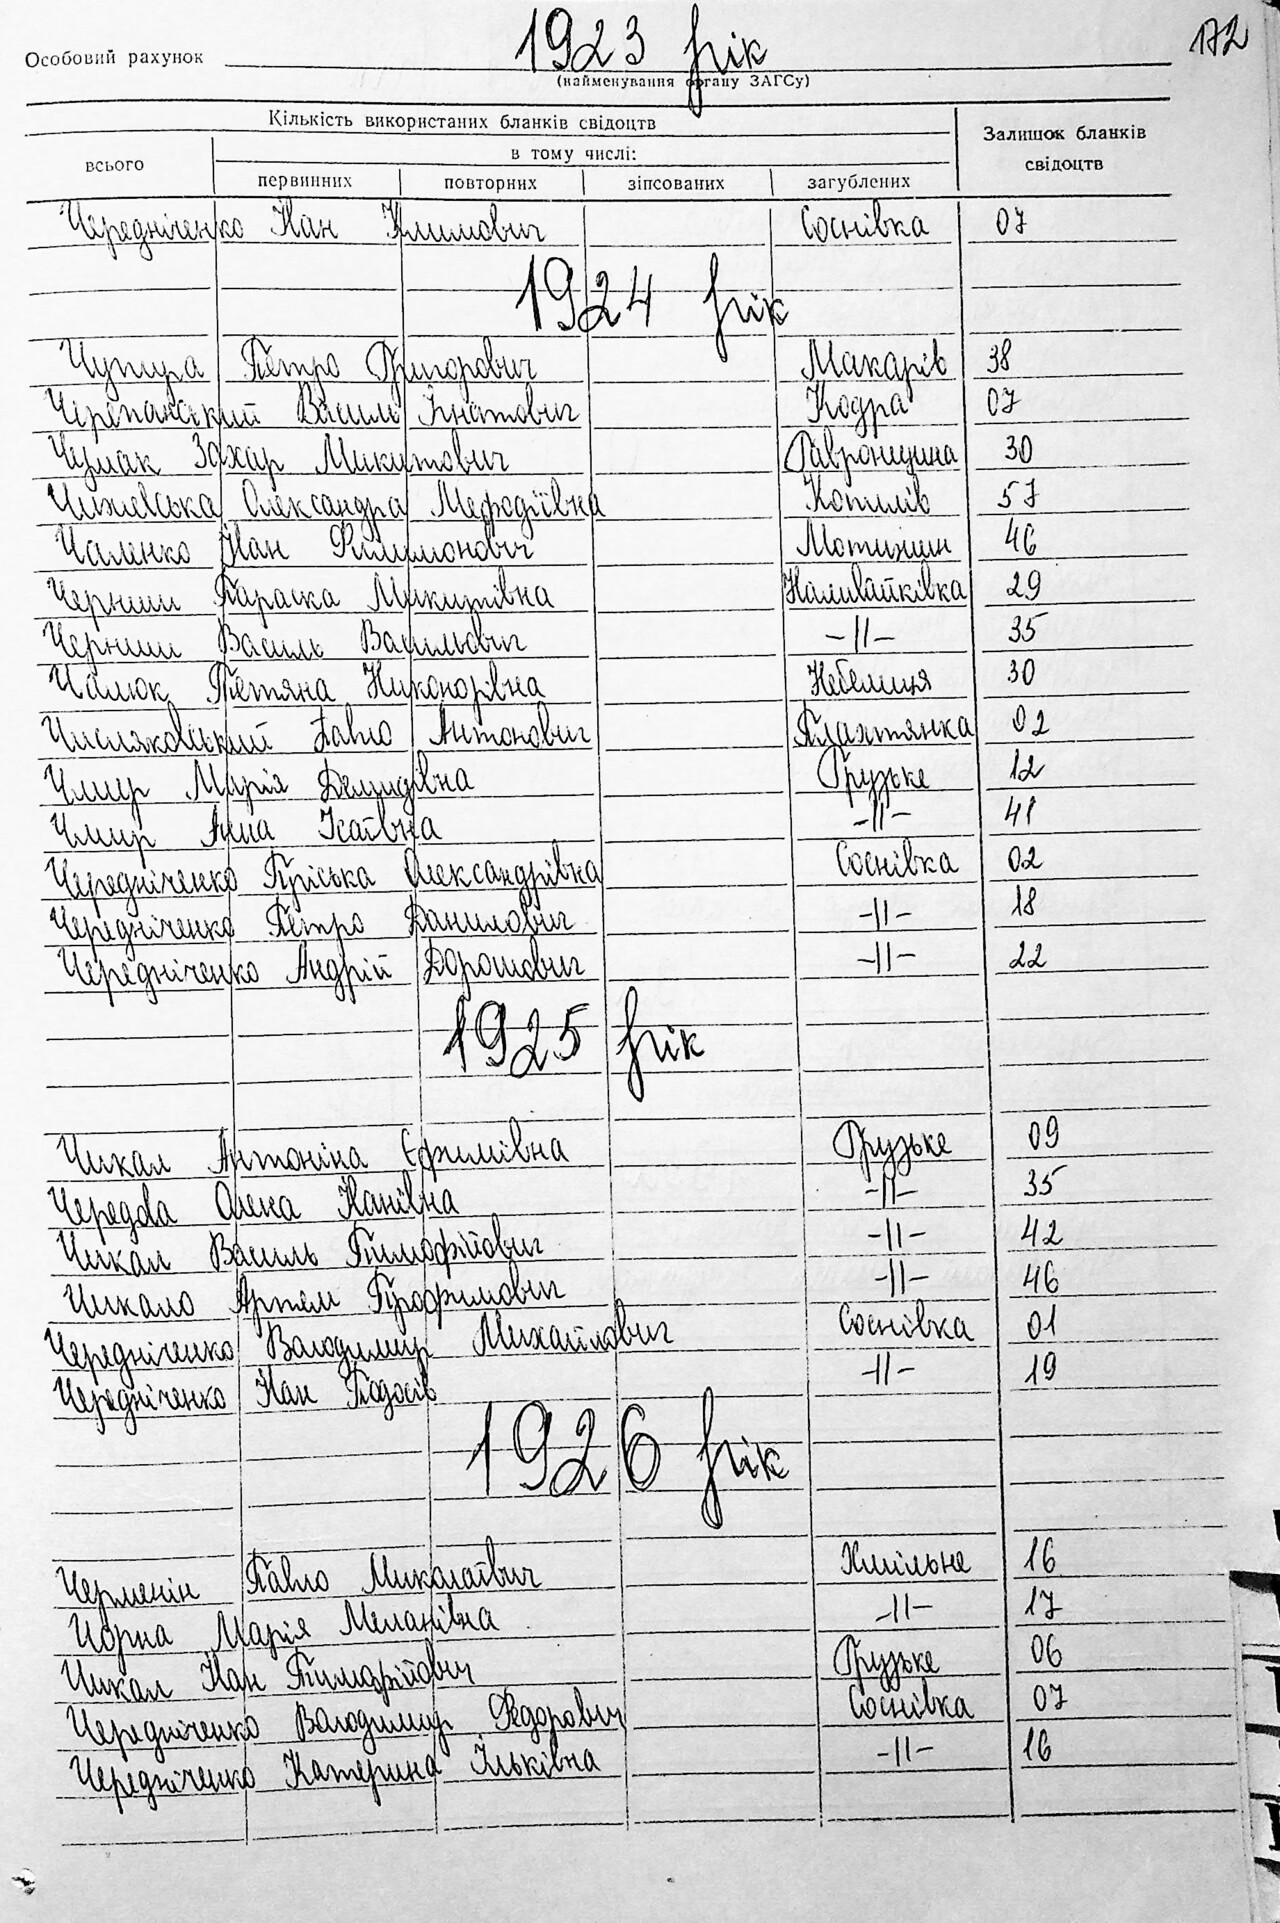 172
1923 рік
Особовий рахунок
(найменування органу ЗАГСу)
Кількість використаних бланків свідоцтв
Залишок бланків свідоцтв
всього
в тому числі:
первинних повторних зіпсованих загублених
Чередніченко Іван Климович Соснівка 07
1924 рік
Чупира Петро Григорович Макарів 38
Черепанський Василь Ігнатович Кодра 07
Чумак Захар Микитович Гавронщина 30
Чижевська Олександра Мефодіївна Копилів 57
Чаленко Іван Филимонович Мотижин 46
Черниш Параска Микитівна Наливайківка 29
Черниш Василь Васильович -||- 35
Чалюк Тетяна Никонорівна Небелиця 30
Числяковський Павло Антонович Плахтянка 02
Чмир Марія Демидівна Грузьке 12
Чмир Анна Ісаївна -||- 41
Чередніченко Пріська Олександрівна Соснівка 02
Чередніченко Петро Данилович -||- 18
Чередніченко Андрій Дорошович -||- 22
1925 рік
Чикал Антоніна Єфимівна Грузьке 09
Чередова Олена Іванівна -||- 35
Чикал Василь Тимофійович -||- 42
Чикало Артем Трофимович -||- 46
Чередніченко Володимир Михайлович Соснівка 01
Чередніченко Іван Тодосів -||- 19
1926 рік
Черменін Павло Миколаївич Хмільне 16
Чорна Марія Меланівна -||- 17
Чикал Іван Тимофійович Грузьке 06
Чередніченко Володимир Федорович Соснівка 07
Чередніченко Катерина Ільківна -||- 16